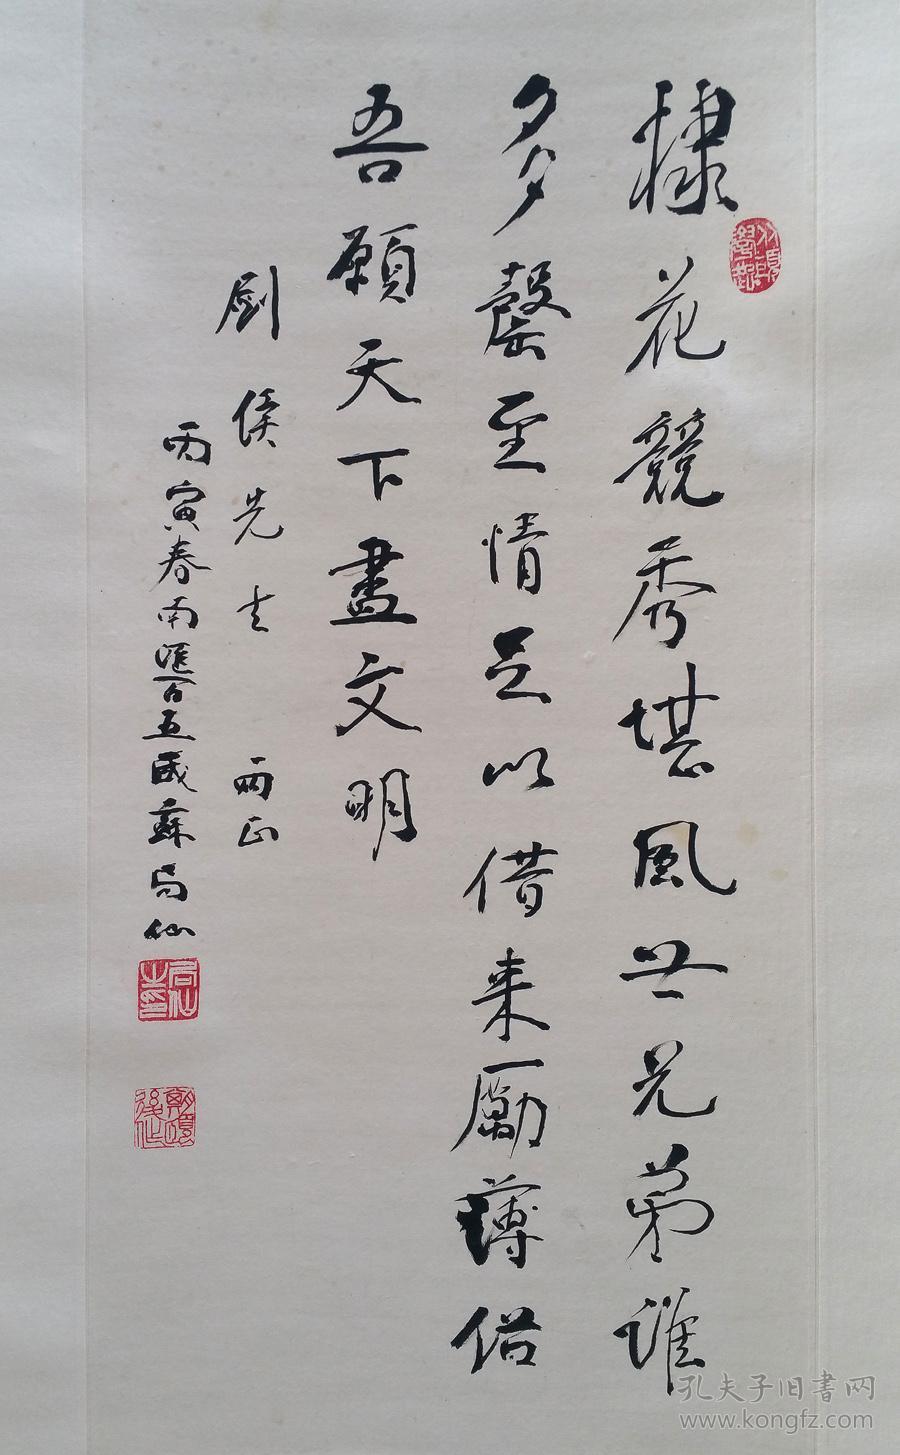 棣花競秀堪風世兄弟誰
多罄至情足以借来勵薄俗
吾願天下盡文明
劍侯先生 兩正
丙寅春南匯百五歲蘇局仙
局仙之印
孔夫子旧書网
www.kongfz.com